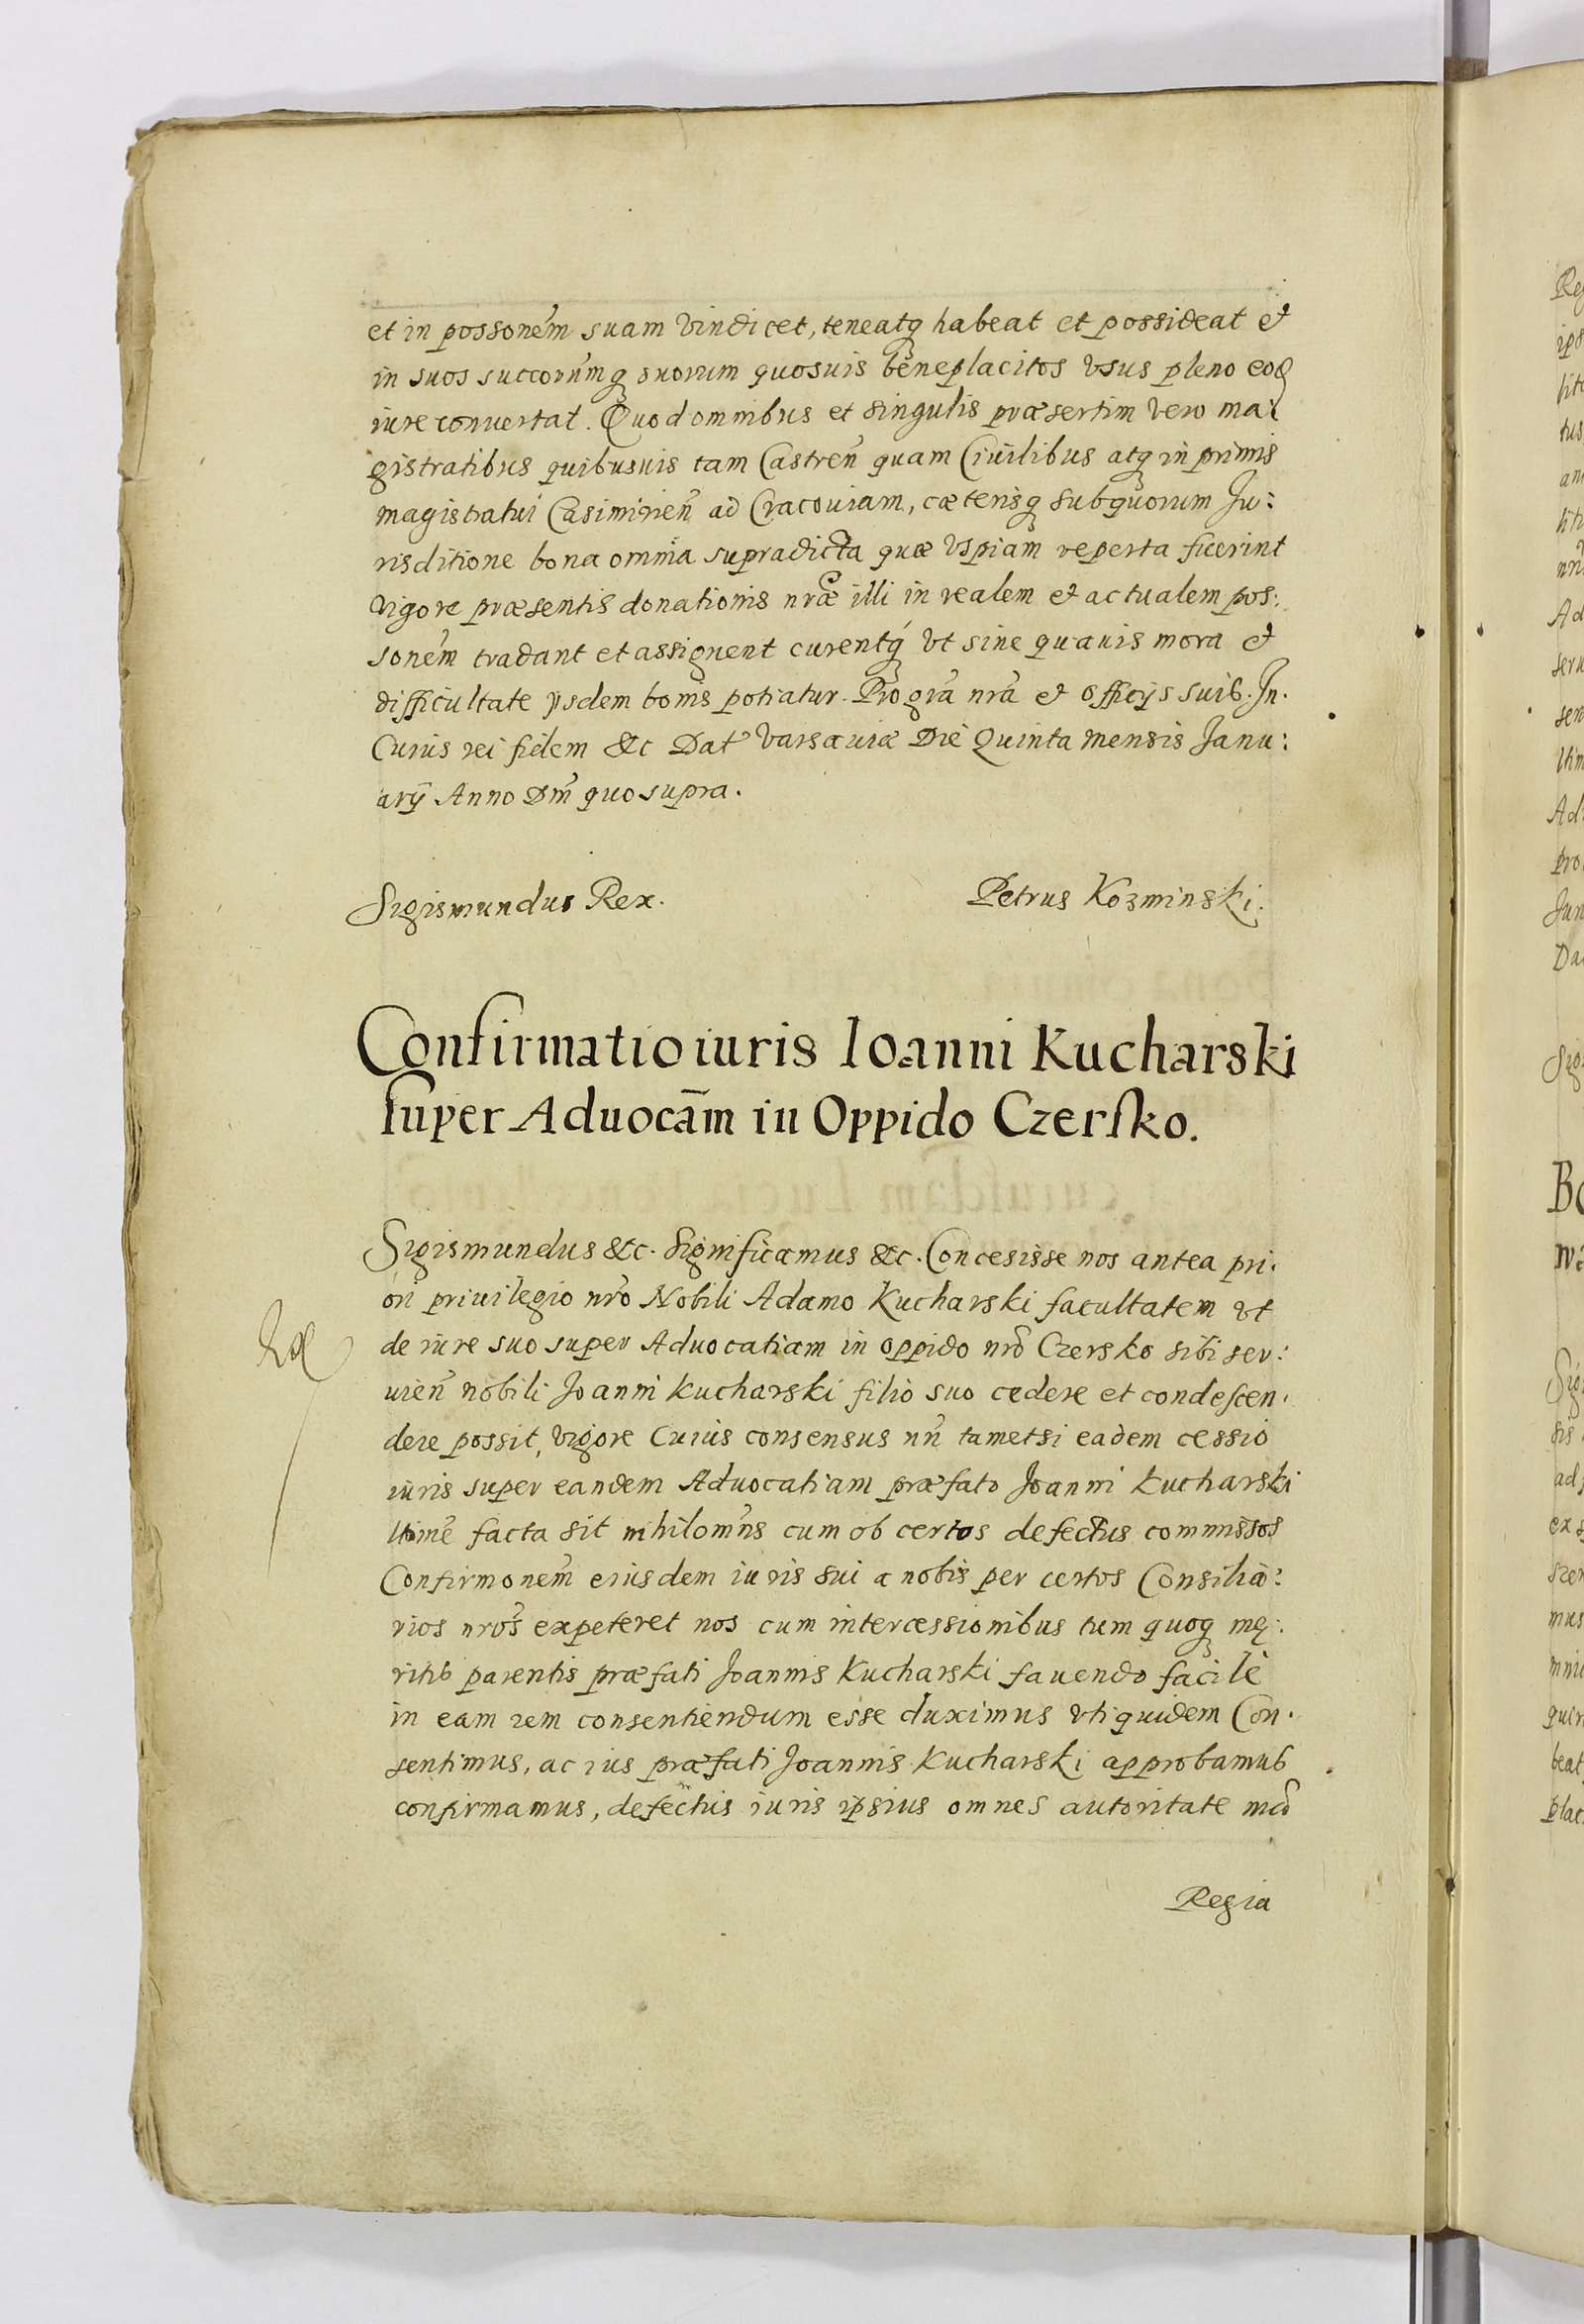 et in possonem̃ suam vindicet, teneatq̃ habeat et possideat et
in suos succorumq̃ suorum quosuis beneplacitos vsus pleno eoq̃
iure conuertat. Quod omnibus et singulis præsertim vero ma:
gistratibus quibusuis tam Castreñ quam Ciuilibus atq̃ in primis
magistratui Casimirieñ ad Cracouiam, cæterisq̃ sub quorum Ju:
risditione bona omnia supradicta quæ vspiam reperta fuerint
vigore præsentis donationis nr̃æ illi in realem et actualem pos:
sonem̃ tradant et assignent curentq̃ vt sine quauis mora et
difficultate ysdem bonis potiatur. Pro gr̃a nr̃a et officijs suis. In
Cuius rei fidem &c Dat̃ Varsauiæ Die Quinta mensis Janu:
arÿ Anno Dm̃ quo supra.
Sigismundus Rex.
Petrus Kozminski.
Confirmatio iuris Ioanni Kucharski
super Aduocãm in Oppido Czersko.
Sigismundus &c. Significamus &c. Concesisse nos antea pri:
ori priuilegio nr̃o Nobili Adamo Kucharski facultatem vt
de iure suo super Aduocatiam in oppido nr̃o Czersko sibi ser:
uieñ nobili Joanni Kucharski filio suo cedere et condescen:
dere possit, vigore Cuius consensus nr̃i tametsi eadem cessio
iuris super eandem Aduocatiam præfato Joanni Kucharski
ltime facta sit nihilomñs cum ob certos defectus commissos
Confirmonem̃ eiusdem iuris sui a nobis per certos Consilia:
rios nr̃os expeteret nos cum intercessionibus tum quoq̃ me:
ritis parentis præfati Joannis Kucharski fauendo facilè
in eam rem consentiendum esse duximus vti quidem Con:
sentimus, ac ius præfati Joannis Kucharski approbamus
confirmamus, defectus iuris ipsius omnes autoritate nr̃a
Regia